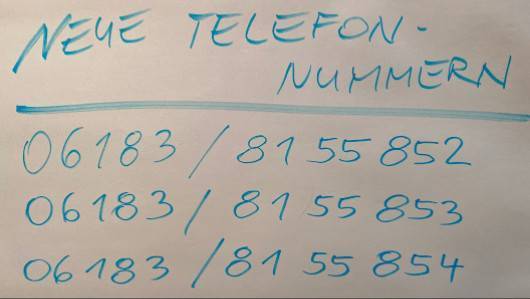 NEUE TELEFON-
NUMMERN
06183 / 81 55 852
06183 / 81 55 853
06183 / 81 55 854